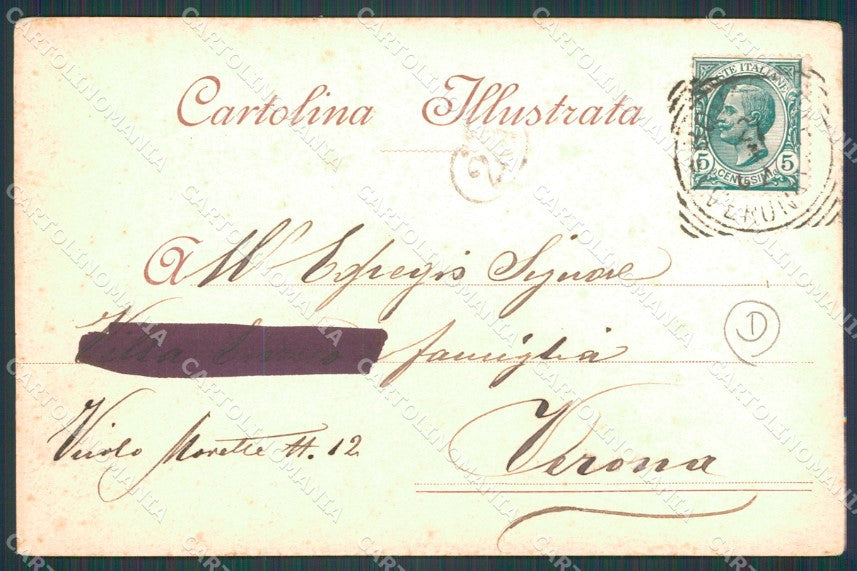 Cartolina Illustrata
POSTE ITALIANE
5 CENTESIMI 5
VERONA
2
All' Egregio Signore
famiglia
D
Vicolo Morette N. 12
Verona
CARTOLINOMANIA